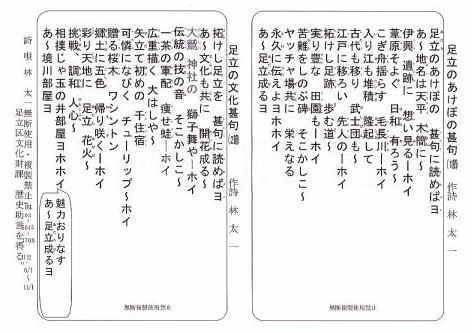 足立のあけぼの甚句(一)　作詩 林 太一
足立のあけぼの　甚句に読めばヨ
あ～地名は天平　木簡に～
伊興　遺跡に　想い見る―ホイ
葦原そよぐ　日和　有ろう～
こぎ舟揺らす　毛長川―ホイ
入り江も堆積　隆起して
古代も移り　武士団も～
江戸に移ろい　先人の―ホイ
拓けし足跡　歩む道～
実り豊な　田園も―ホイ
苦難をしのぶ碑　そこかしこ～
ヤッチャ場共に　栄えなる
永久に伝えよヨホホイ
あ～足立成るヨ
無断複製使用禁止
足立の文化甚句　作詩 林 太一
拓けし足立を　甚句に読めばヨ
あ～文化も共に　開花成る～
大鷲 神社の　獅子舞や―ホイ
伝統の技の音　そこかしこ～
一茶の軍配　痩せ蛙―ホイ
広重描く　大はしや～
矢立て初めの　千住宿
可憐になびく　チューリップ～ホイ
贈る桜木　ワシントン
郷土に五色　帰り咲く―ホイ
彩り天地に　足立　花火～
挑戦、調和　人の心
相撲じゃ玉の井部屋ヨホホイ
あ～境川部屋ヨ
魅力おりなす
あ～足立成るヨ
無断複製使用禁止
詩 唄 林 太一 無断使用・複製禁止
足立区文化・財課 歴史助言を得る